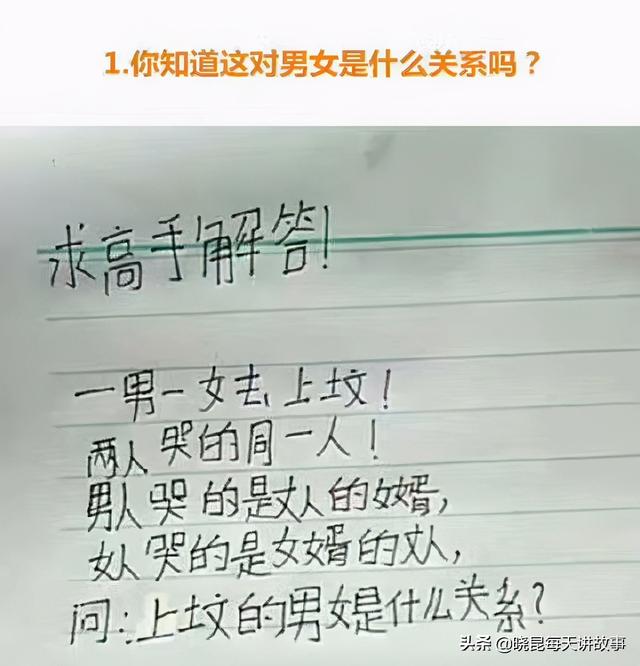 1.你知道这对男女是什么关系吗？
求高手解答!
一男一女去上坟!
两人哭的同一人!
男人哭的是丈人的女婿,
女人哭的是女婿的丈人,
问:上坟的男女是什么关系?
头条 @晓昆每天讲故事